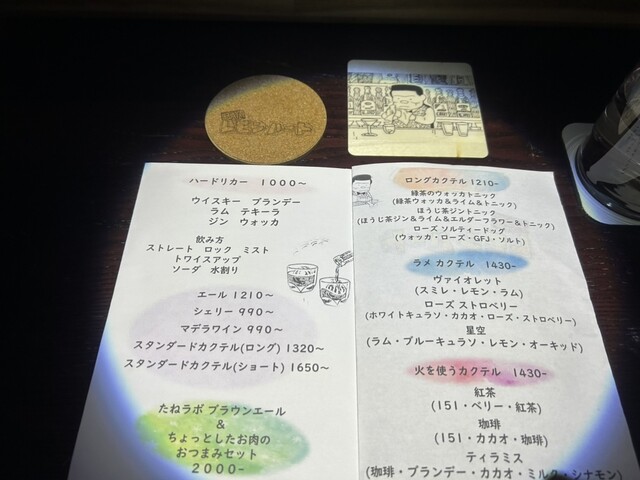 レモンハート
ハードリカー 1000〜
ウイスキー ブランデー
ラム テキーラ
ジン ウォッカ
飲み方
ストレート ロック ミスト
トワイスアップ
ソーダ 水割り
エール 1210〜
シェリー 990〜
マデラワイン 990〜
スタンダードカクテル(ロング) 1320〜
スタンダードカクテル(ショート) 1650〜
たねラボ ブラウンエール
&
ちょっとしたお肉の
おつまみセット
2000-
ロングカクテル 1210-
緑茶のウォッカトニック
(緑茶ウォッカ&ライム&トニック)
ほうじ茶ジントニック
(ほうじ茶ジン&ライム&エルダーフラワー&トニック)
ローズ ソルティードッグ
(ウォッカ・ローズ・GFJ・ソルト)
ラメ カクテル 1430-
ヴァイオレット
(スミレ・レモン・ラム)
ローズ ストロベリー
(ホワイトキュラソ・カカオ・ローズ・ストロベリー)
星空
(ラム・ブルーキュラソ・レモン・オーキッド)
火を使うカクテル 1430-
紅茶
(151・ベリー・紅茶)
珈琲
(151・カカオ・珈琲)
ティラミス
(珈琲・ブランデー・カカオ・ミルク・シナモン)